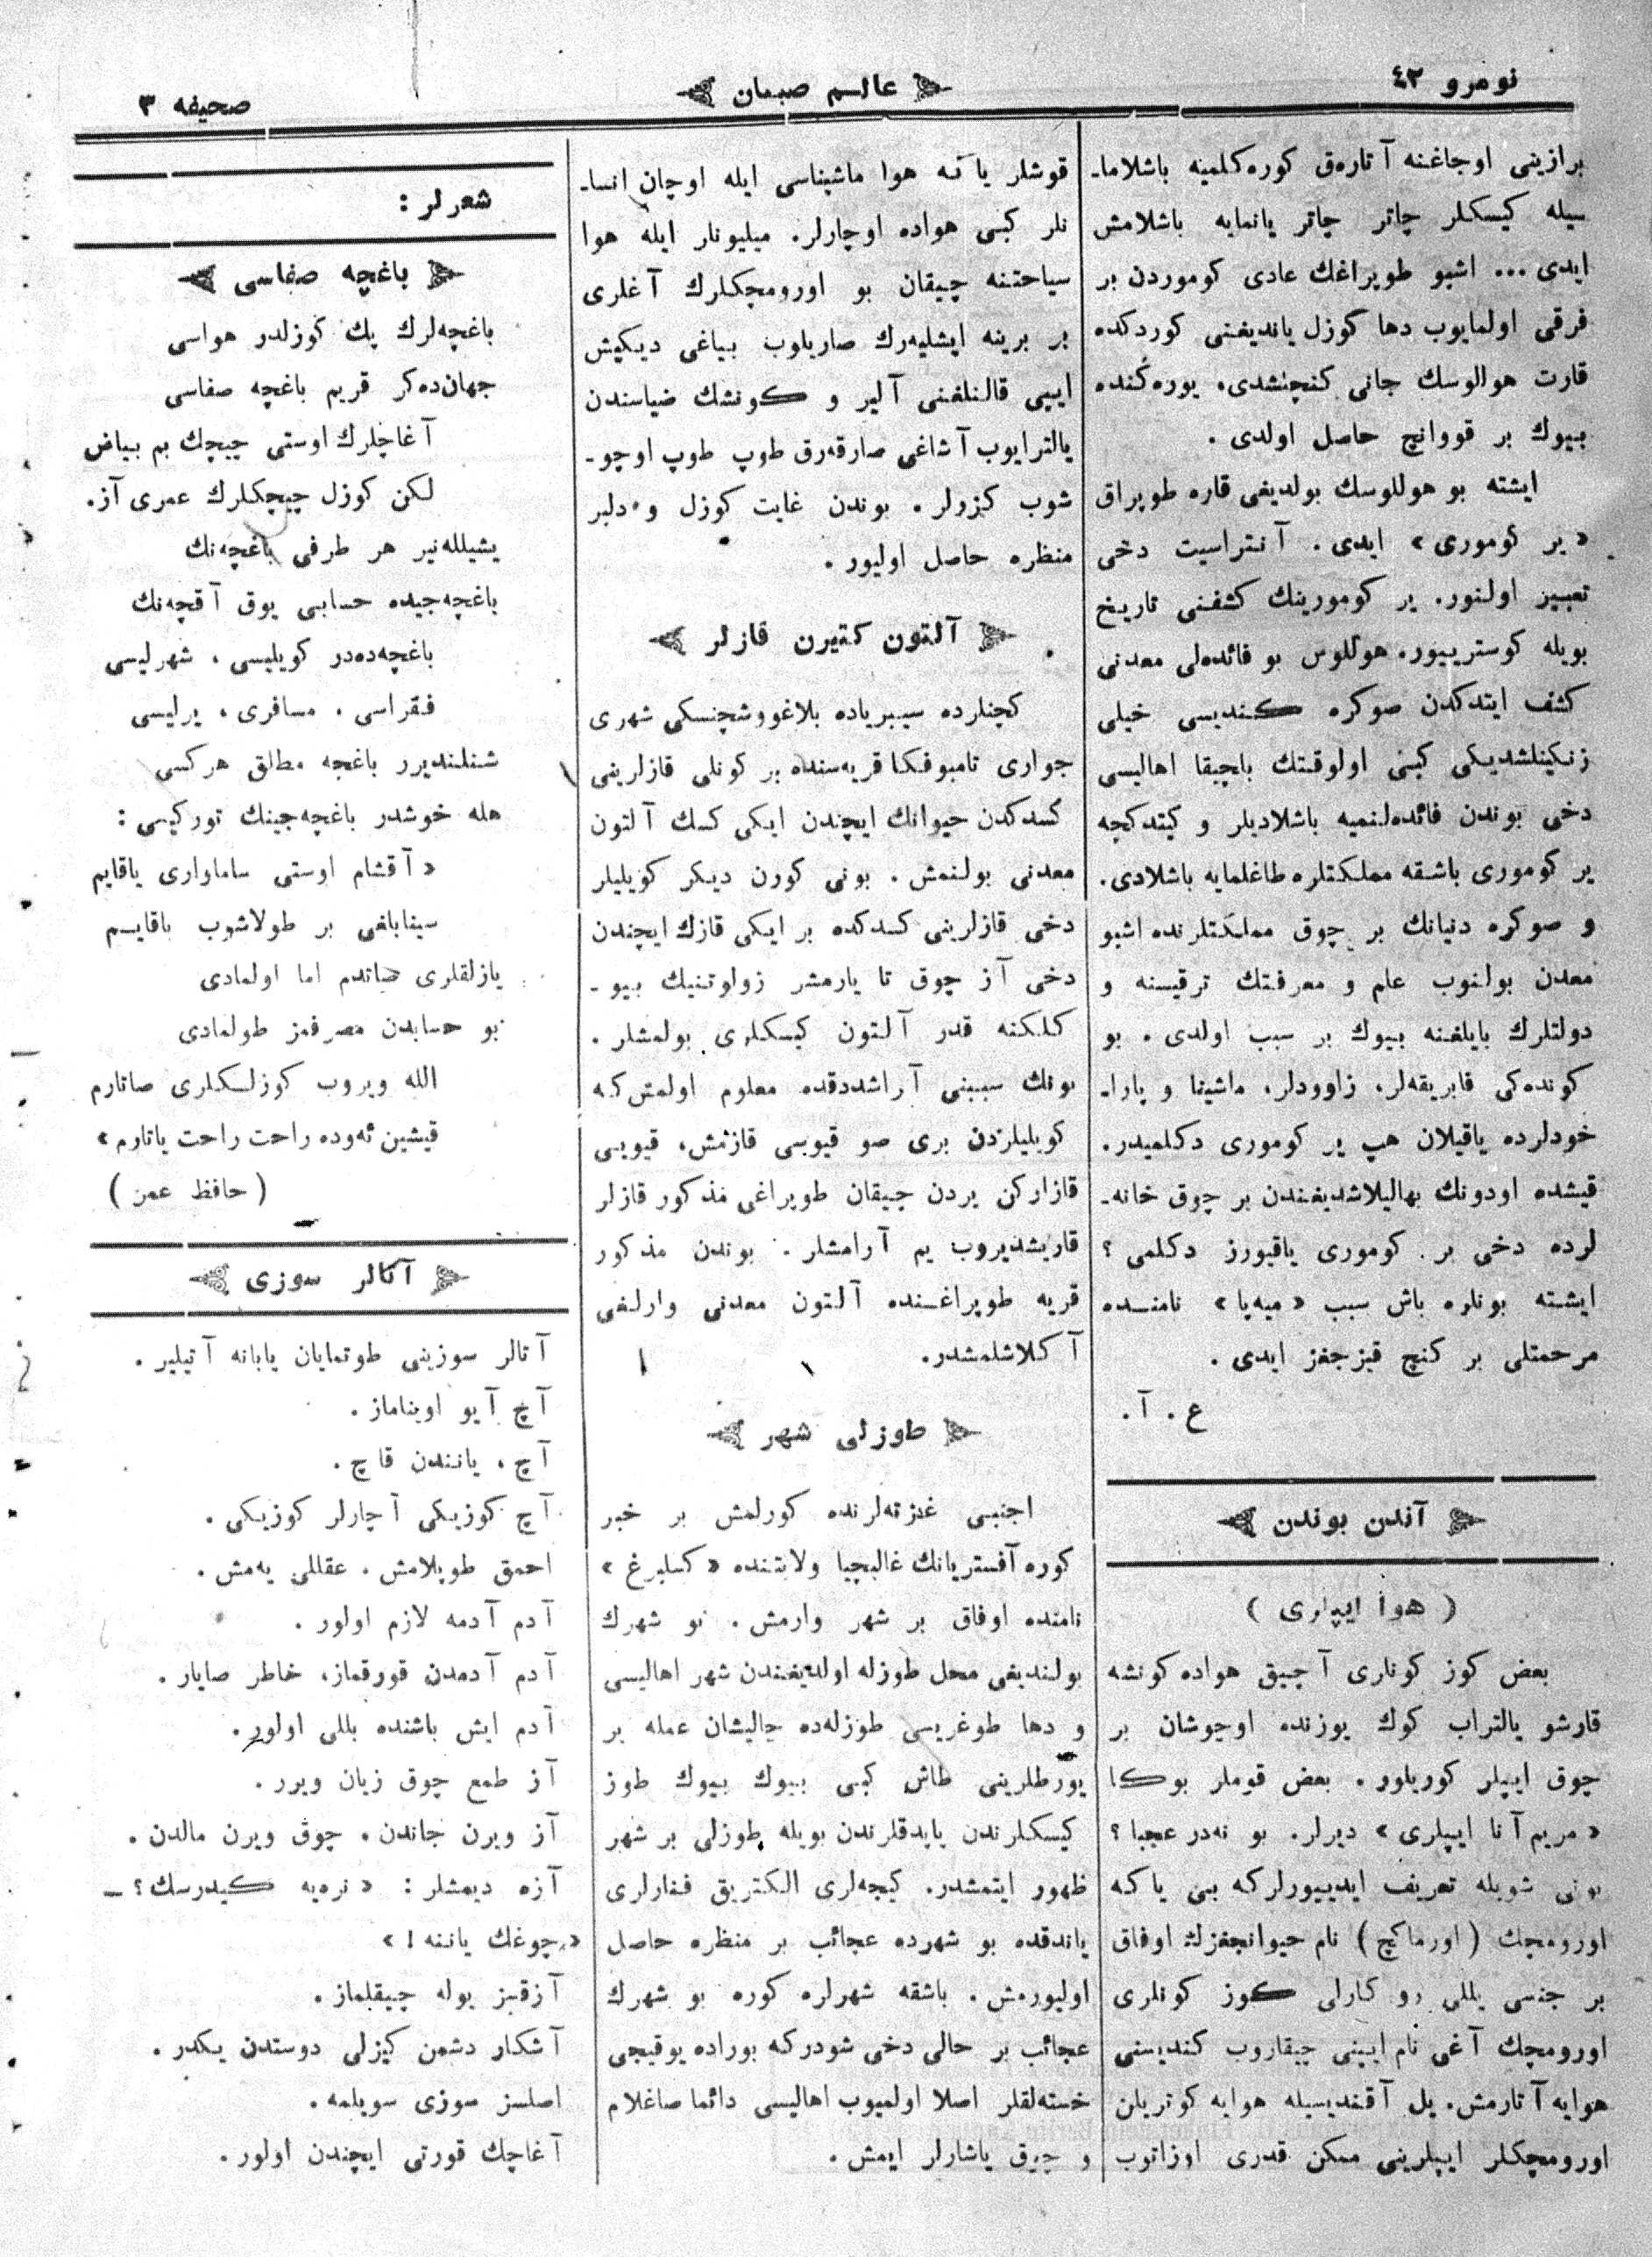 نومرو ٤٣
عالم صبيان
صحيفه ٣
برازينى اوجاغنه آتارەق كورەكلمينه باشلاما-
سيله كيسكلر چاتر چاتر يانمايه باشلامش
ايدى ... اشبو طوپراغك عادى كوموردن بر
فرقى اولمايوب دها كوزل يانديغنى كوردكده
قارت هوللوسك جانى كنچنشدى. يورەكنده
بيوك بر قووانچ حاصل اولدى .
ايشته بو هوللوسك بولديغى قاره طوپراق
« ير كومورى » ايدى . آنتراسيت دخى
تعبير اولنور. ير كومورينك كشفنى تاريخ
بويله كوستريیور. هوللوس بو فائدەلى معدنى
كشف ايتدكدن صوكره كنديسى خيلى
زنكينلشديكى كبى اولوقتك باچيقا اهاليسى
دخى بوندن فائدەلنميه باشلاديلر و كيتدكچه
ير كومورى باشقه مملكتلره طاغلمايه باشلادى.
و صوكره دنيانك بر چوق مملكتلرنده اشبو
معدن بولنوب علم و معرفتك ترقيسنه و
دولتلرك بايلغنه بيوك بر سبب اولدى . بو
كوندەكى فابريقەلر، زاوودلر، ماشينا و پارا-
خودلرده ياقيلان هپ ير كومورى دكلميدر.
قيشده اودونك بهاليلاشديغندن بر چوق خانه-
لرده دخى ير كومورى ياقيورز دكلمى ؟
ايشته بونلره باش سبب « ميەپا » نامنده
مرحمتلى بر كنچ قيزجغز ايدى .
ع . آ .
آندن بوندن
( هوا ايپلرى )
بعض كوز كونلرى آچيق هواده كونشه
قارشو يالتراب كوك يوزنده اوچوشان بر
چوق ايپلر كوريلور . بعض قوملر بوكا
« مريم آنا ايپلرى » ديرلر. بو نەدر عجبا ؟
بونى شويله تعريف ايديیورلركه بنى ياكه
اورومچك ( اورماكچ ) نام حيوانجغزك اوفاق
بر جنسى يللى رو كارلى كوز كونلرى
اورومچك آغى نام ايپنى چيقاروب كنديسنى
هوايه آتارمش. يل آقنديسيله هوايه كوتريلن
اورومچكلر ايپلرينى ممكن قدرى اوزاتوب
قوشلر ياكه هوا ماشيناسى ايله اوچان انسا-
نلر كبى هواده اوچارلر. ميليونلر ايله هوا
سياحتنه چيقان بو اورومچكلرك آغلرى
بر برينه ايشليەرك صاريلوب بياغى ديكيش
ايپى قالنلغنى آلير و كونشك ضياسندن
يالترايوب آشاغى صارقەرق طوپ طوپ اوچو-
شوب كزرلر . بوندن غايت كوزل و دلبر
منظره حاصل اوليور .
آلتون كتيرن قازلر
كچنلرده سيبرياده بلاغووشچنسكى شهرى
جوارى تامبوفكا قريەسنده بر كونلى قازلرينى
كسدكدن حيوانك ايچندن ايكى كسك آلتون
معدنى بولنمش . بونى كورن ديكر كويليلر
دخى قازلرينى كسدكده بر ايكى قازك ايچندن
دخى آز چوق تا يارمشر زولوتنيك بيو-
كلكنه قدر آلتون كيسكلرى بولمشلر .
بونك سببنى آراشددقده معلوم اولمش كه
كويليلردن برى صو قيوسى قازمش، قيويى
قازاركن يردن چيقان طوپراغى مذكور قازلر
قاريشديروب يم آرامشلر . بوندن مذكور
قريه طوپراغنده آلتون معدنى وارلغى
آكلاشلمشدر.
طوزلى شهر
اجنبى غزتەلرنده كورلمش بر خبر
كوره آفستريانك غاليچيا ولايتنده « كسلبرغ »
نامنده اوفاق بر شهر وارمش . بو شهرك
بولنديغى محل طوزله اولديغندن شهر اهاليسى
و دها طوغريسى طوزلەده چاليشان عمله بر
يورطلرينى طاش كبى بيوك بيوك طوز
كيسكلرندن ياپدقلرندن بويله طوزلى بر شهر
ظهور ايتمشدر. كيجەلرى الكتريق فنارلرى
ياندقده بو شهرده عجائب بر منظره حاصل
اوليورمش . باشقه شهرلره كوره بو شهرك
عجائب بر حالى دخى شودركه بوراده يوقيجى
خستەلقلر اصلا اولميوب اهاليسى دائما صاغلام
و چوق ياشارلر ايمش .
شعرلر :
باغچه صفاسى
باغچەلرك پك كوزلدر هواسى
جهاندەكر قريم باغچه صفاسى
آغاچلرك اوستى چيچك بم بياض
لكن كوزل چيچكلرك عمرى آز.
يشيللەنير هر طرفى باغچەنك
باغچەجيده حسابى يوق آقچەنك
باغچەدەدر كويليسى ، شهرليسى
فقراسى ، مسافرى ، يرليسى
شنلنديرر باغچه مطلق هركسى
هله خوشدر باغچەجينك توركيسى :
« آقشام اوستى ساماوارى ياقايم
سيناباغى بر طولاشوب باقايم
يازلقلرى صاتدم اما اولمادى
بو حسابدن مصرفمز طولمادى
الله ويروب كوزلكلرى صاتارم
قيشين ئەوده راحت راحت ياتارم »
( حافظ عمر )
آتالر سوزى
آتالر سوزينى طوتمايان يابانه آتيلير .
آچ آيو اويناماز .
آچ ، يانندن قاچ .
آچ كوزيكى آچارلر كوزيكى .
احمق طوپلامش . عقللى يەمش .
آدم آدمه لازم اولور .
آدم آدمدن قورقماز، خاطر صايار .
آدم ايش باشنده بللى اولور.
آز طمع چوق زيان ويرر .
آز ويرن جاندن . چوق ويرن مالدن .
آزه ديمشلر : « نرەيه كيدرسك؟ ــ
« چوغك ياننه ! »
آزقسز يوله چيقلماز .
آشكار دشمن كيزلى دوستدن يكدر .
اصلسز سوزى سويلمه .
آغاچك قورتى ايچندن اولور .